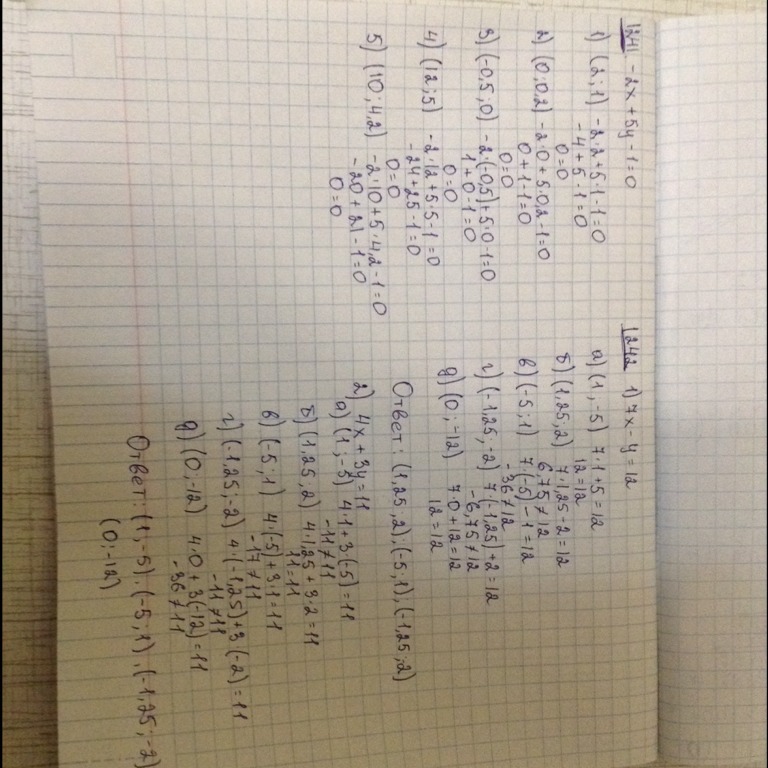 1241. -2x+5y-1=0
1) (2;1) -2·2+5·1-1=0
-4+5-1=0
0=0
2) (0;0,2) -2·0+5·0,2-1=0
0+1-1=0
0=0
3) (-0,5;0) -2·(-0,5)+5·0-1=0
1+0-1=0
0=0
4) (12;5) -2·12+5·5-1=0
-24+25-1=0
0=0
5) (10;4,2) -2·10+5·4,2-1=0
-20+21-1=0
0=0
1242 1) 7x-y=12
а) (1;-5) 7·1+5=12
12=12
б) (1,25;2) 7·1,25-2=12
6,75≠12
в) (-5;1) 7·(-5)-1=12
-36≠12
г) (-1,25;-2) 7(-1,25)+2=12
-6,75≠12
д) (0;-12) 7·0+12=12
12=12
Ответ: (1,25;2);(-5;1),(-1,25;2)
2) 4x+3y=11
а) (1;-5) 4·1+3·(-5)=11
-11≠11
б) (1,25;2) 4·1,25+3·2=11
11=11
в) (-5;1) 4·(-5)+3·1=11
-17≠11
г) (-1,25;-2) 4·(-1,25)+3(-2)=11
-11≠11
д) (0;-12) 4·0+3(-12)=11
-36≠11
Ответ: (1;-5).(-5;1).(-1,25;-2)
(0;-12)